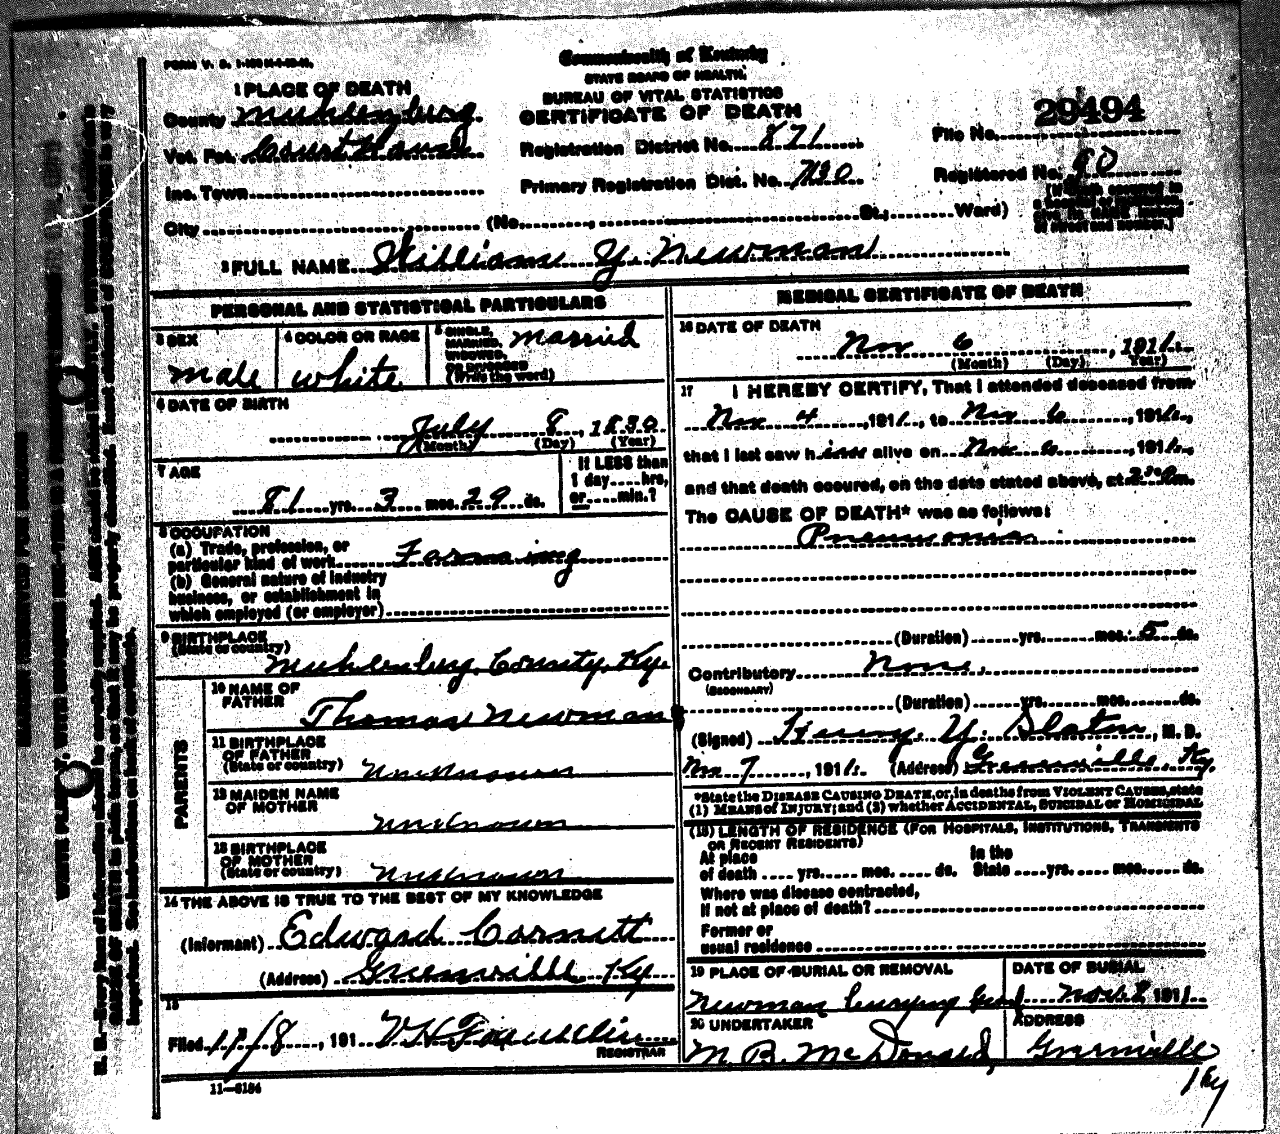 Commonwealth of Kentucky
STATE BOARD OF HEALTH
BUREAU OF VITAL STATISTICS
CERTIFICATE OF DEATH
1 PLACE OF DEATH
County Muhlenburg
Vot. Pct. Court House
Inc. Town
City (No. , St.; Ward)
Registration District No. 871
Primary Registration Dist. No. 730
File No. 29494
Registered No. 90
2 FULL NAME William Y. Newman
PERSONAL AND STATISTICAL PARTICULARS
3 SEX
Male
4 COLOR OR RACE
White
5 SINGLE, MARRIED, WIDOWED, OR DIVORCED (Write the word)
Married
6 DATE OF BIRTH
July 8, 1830
(Month) (Day) (Year)
7 AGE
81 yrs. 3 mos. 29 ds.
If LESS than
1 day.....hrs,
or.....min.?
8 OCCUPATION
(a) Trade, profession, or
particular kind of work Farming
(b) General nature of industry
business, or establishment in
which employed (or employer)
9 BIRTHPLACE
(State or country)
Muhlenburg County, Ky.
PARENTS
10 NAME OF
FATHER
Thomas Newman
11 BIRTHPLACE
OF FATHER
(State or country) Unknown
12 MAIDEN NAME
OF MOTHER
Unknown
13 BIRTHPLACE
OF MOTHER
(State or country) Unknown
14 THE ABOVE IS TRUE TO THE BEST OF MY KNOWLEDGE
(Informant) Edward Cornett
(Address) Greenville Ky
15
Filed 11/8, 191
REGISTRAR
11—3184
MEDICAL CERTIFICATE OF DEATH
16 DATE OF DEATH
Nov 6, 1911.
(Month) (Day) (Year)
17 I HEREBY CERTIFY, That I attended deceased from
Nov 4, 1911., to Nov 6, 1911.,
that I last saw him alive on Nov 6, 1911.,
and that death occured, on the date stated above, at m.
The CAUSE OF DEATH* was as follows:
Pneumonia
(Duration) yrs. mos. 5 ds.
Contributory None.
(SECONDARY)
(Duration) yrs. mos. ds.
(Signed) Henry Y. Slaton, M. D.
Nov 7, 1911. (Address) Greenville Ky.
*State the DISEASE CAUSING DEATH, or, in deaths from VIOLENT CAUSES, state
(1) MEANS of INJURY; and (2) whether ACCIDENTAL, SUICIDAL or HOMICIDAL
(18) LENGTH OF RESIDENCE (FOR HOSPITALS, INSTITUTIONS, TRANSIENTS
OR RECENT RESIDENTS)
At place In the
of death .... yrs. .... mos. .... ds. State ....yrs. .... mos. .... ds.
Where was disease contracted,
If not at place of death?
Former or
usual residence
19 PLACE OF BURIAL OR REMOVAL
Newman burying
DATE OF BURIAL
Nov. 8, 1911.
20 UNDERTAKER
M. B. McDonald,
ADDRESS
Greenville
Ky